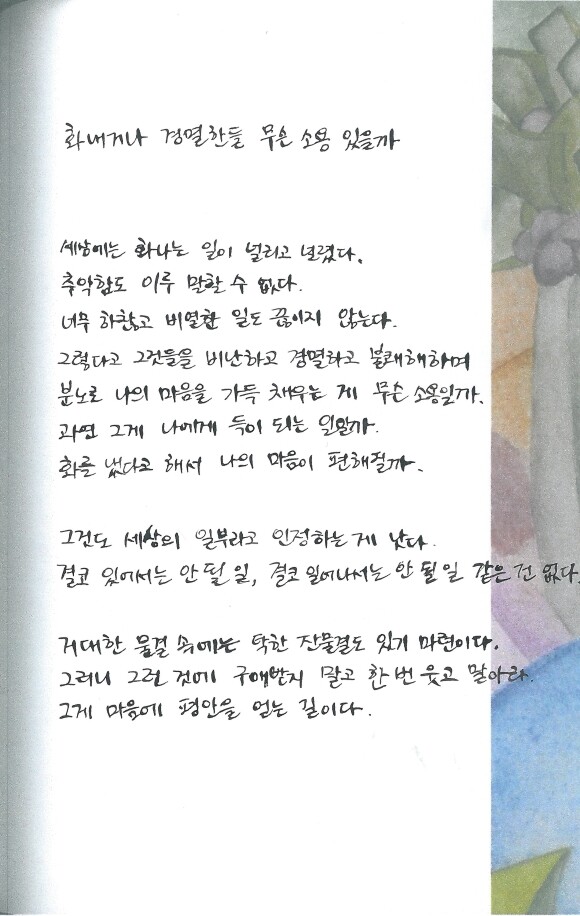 화내거나 경멸한들 무슨 소용 있을까
세상에는 화나는 일이 널리고 널렸다.
추악함도 이루 말할 수 없다.
너무 하찮고 비열한 일도 끊이지 않는다.
그렇다고 그것들을 비난하고 경멸하고 불쾌해하며
분노로 나의 마음을 가득 채우는 게 무슨 소용일까.
과연 그게 나에게 득이 되는 일일까.
화를 냈다고 해서 나의 마음이 편해질까.
그것도 세상의 일부라고 인정하는 게 낫다.
결코 있어서는 안 될 일, 결코 일어나서는 안 될 일 같은 건 없다.
거대한 물결 속에는 탁한 잔물결도 있기 마련이다.
그러니 그런 것에 구애받지 말고 한 번 웃고 말아라.
그게 마음에 평안을 얻는 길이다.